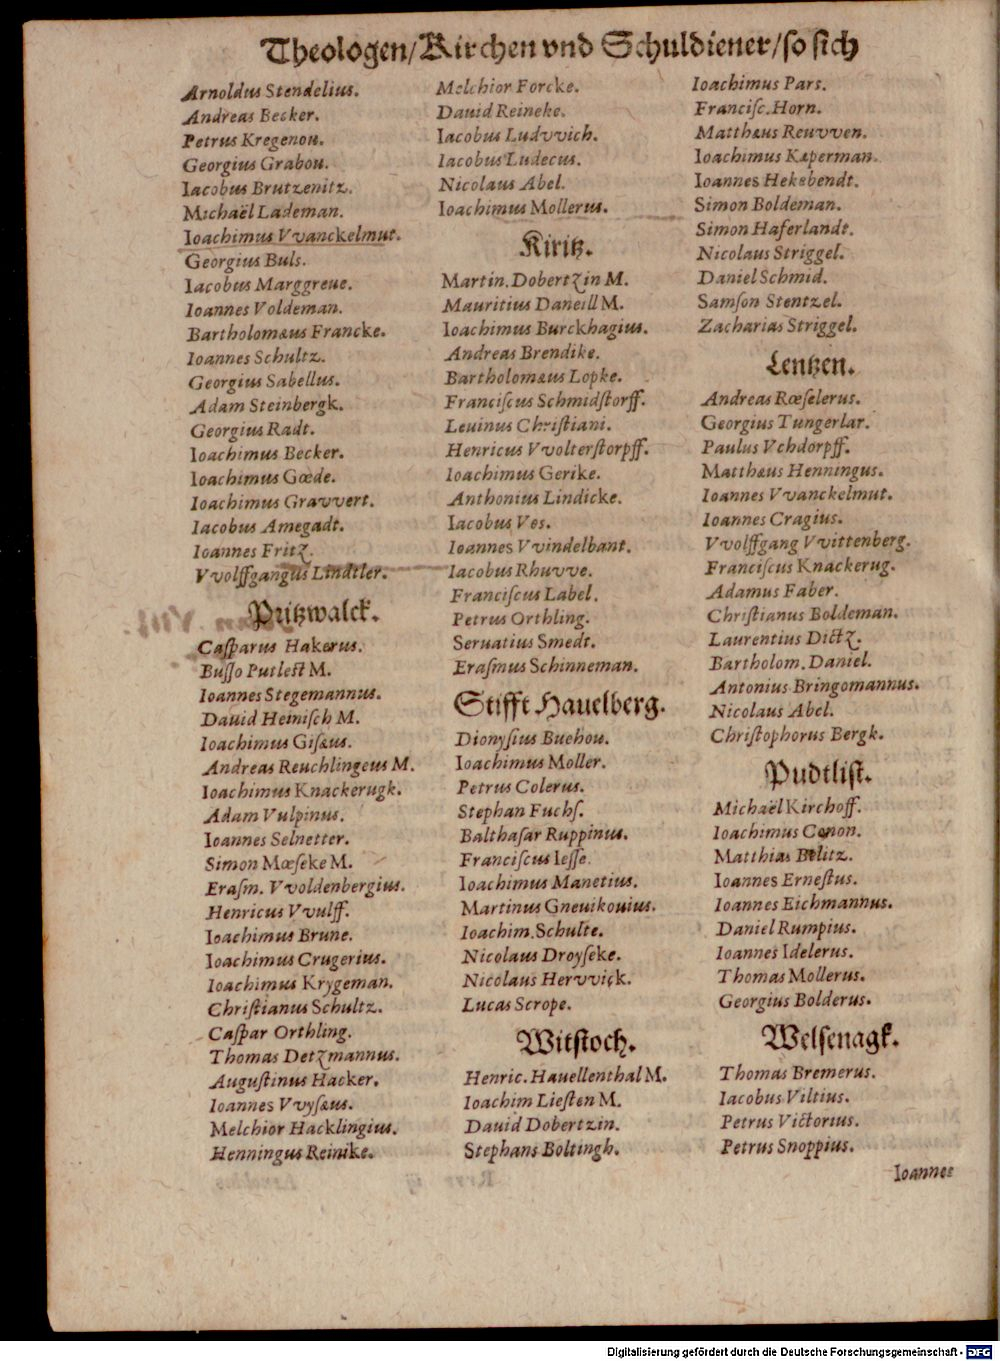 Theologen/Kirchen vnd Schuldiener/so sich
Arnoldus Stendelius.
Andreas Becker.
Petrus Kregenou.
Georgius Grabou.
Iacobus Brutzenitz.
Michaël Lademan.
Ioachimus Vvanckelmut.
Georgius Buls.
Iacobus Marggreue.
Ioannes Voldeman.
Bartholomæus Francke.
Ioannes Schultz.
Georgius Sabellus.
Adam Steinbergk.
Georgius Radt.
Ioachimus Becker.
Ioachimus Gœde.
Ioachimus Gravvert.
Iacobus Amegadt.
Ioannes Fritz.
Vvolffgangus Lindtler.
Pritzwalck.
Caſparus Hakerus.
Buſſo Putlest M.
Ioannes Stegemannus.
Dauid Heiniſch M.
Ioachimus Giſæus.
Andreas Reuchlingeus M.
Ioachimus Knackerugk.
Adam Vulpinus.
Ioannes Selnetter.
Simon Mœſeke M.
Eraſm. Vvoldenbergius.
Henricus Vvulff.
Ioachimus Brune.
Ioachimus Crugerius.
Ioachimus Krygeman.
Chriſtianus Schultz.
Caſpar Orthling.
Thomas Detzmannus.
Auguſtinus Hacker.
Ioannes Vvyſæus.
Melchior Hacklingius.
Henningus Reinike.
Melchior Forcke.
Dauid Reineke.
Iacobus Ludvvich.
Iacobus Ludecus.
Nicolaus Abel.
Ioachimus Mollerus.
Kiritz.
Martin. Dobertzin M.
Mauritius Daneill M.
Ioachimus Burckhagius.
Andreas Brendike.
Bartholomæus Lopke.
Franciſcus Schmidſtorff.
Leuinus Chriſtiani.
Henricus Vvolterſtorpff.
Ioachimus Gerike.
Anthonius Lindicke.
Iacobus Ves.
Ioannes Vvindelbant.
Iacobus Rhuvve.
Franciſcus Label.
Petrus Orthling.
Seruatius Smedt.
Eraſmus Schinneman.
Stifft Hauelberg.
Dionyſius Buehou.
Ioachimus Moller.
Petrus Colerus.
Stephan Fuchſ.
Balthaſar Ruppinus.
Franciſcus Ieſſe.
Ioachimus Manetius.
Martinus Gneuikouius.
Ioachim. Schulte.
Nicolaus Droyſeke.
Nicolaus Hervvick.
Lucas Scrope.
Witſtoch.
Henric. Hauellenthal M.
Ioachim Lieſten M.
Dauid Dobertzin.
Stephans Boltingh.
Ioachimus Pars.
Franciſc. Horn.
Matthæus Reuvven.
Ioachimus Kaperman.
Ioannes Heksbendt.
Simon Boldeman.
Simon Haferlandt.
Nicolaus Striggel.
Daniel Schmid.
Samſon Stentzel.
Zacharias Striggel.
Lentzen.
Andreas Rœſelerus.
Georgius Tungerlar.
Paulus Vchdorpff.
Matthæus Henningus.
Ioannes Vvanckelmut.
Ioannes Cragius.
Vvolffgang Vvittenberg.
Franciſcus Knackerug.
Adamus Faber.
Chriſtianus Boldeman.
Laurentius Dictz.
Bartholom. Daniel.
Antonius Bringomannus.
Nicolaus Abel.
Chriſtophorus Bergk.
Pudtliſt.
Michaël Kirchoff.
Ioachimus Conon.
Matthias Belitz.
Ioannes Erneſtus.
Ioannes Eichmannus.
Daniel Rumpius.
Ioannes Idelerus.
Thomas Mollerus.
Georgius Bolderus.
Welſenagk.
Thomas Bremerus.
Iacobus Viltius.
Petrus Victorius.
Petrus Snoppius.
Ioannes
Digitalisierung gefördert durch die Deutsche Forschungsgemeinschaft - DFG